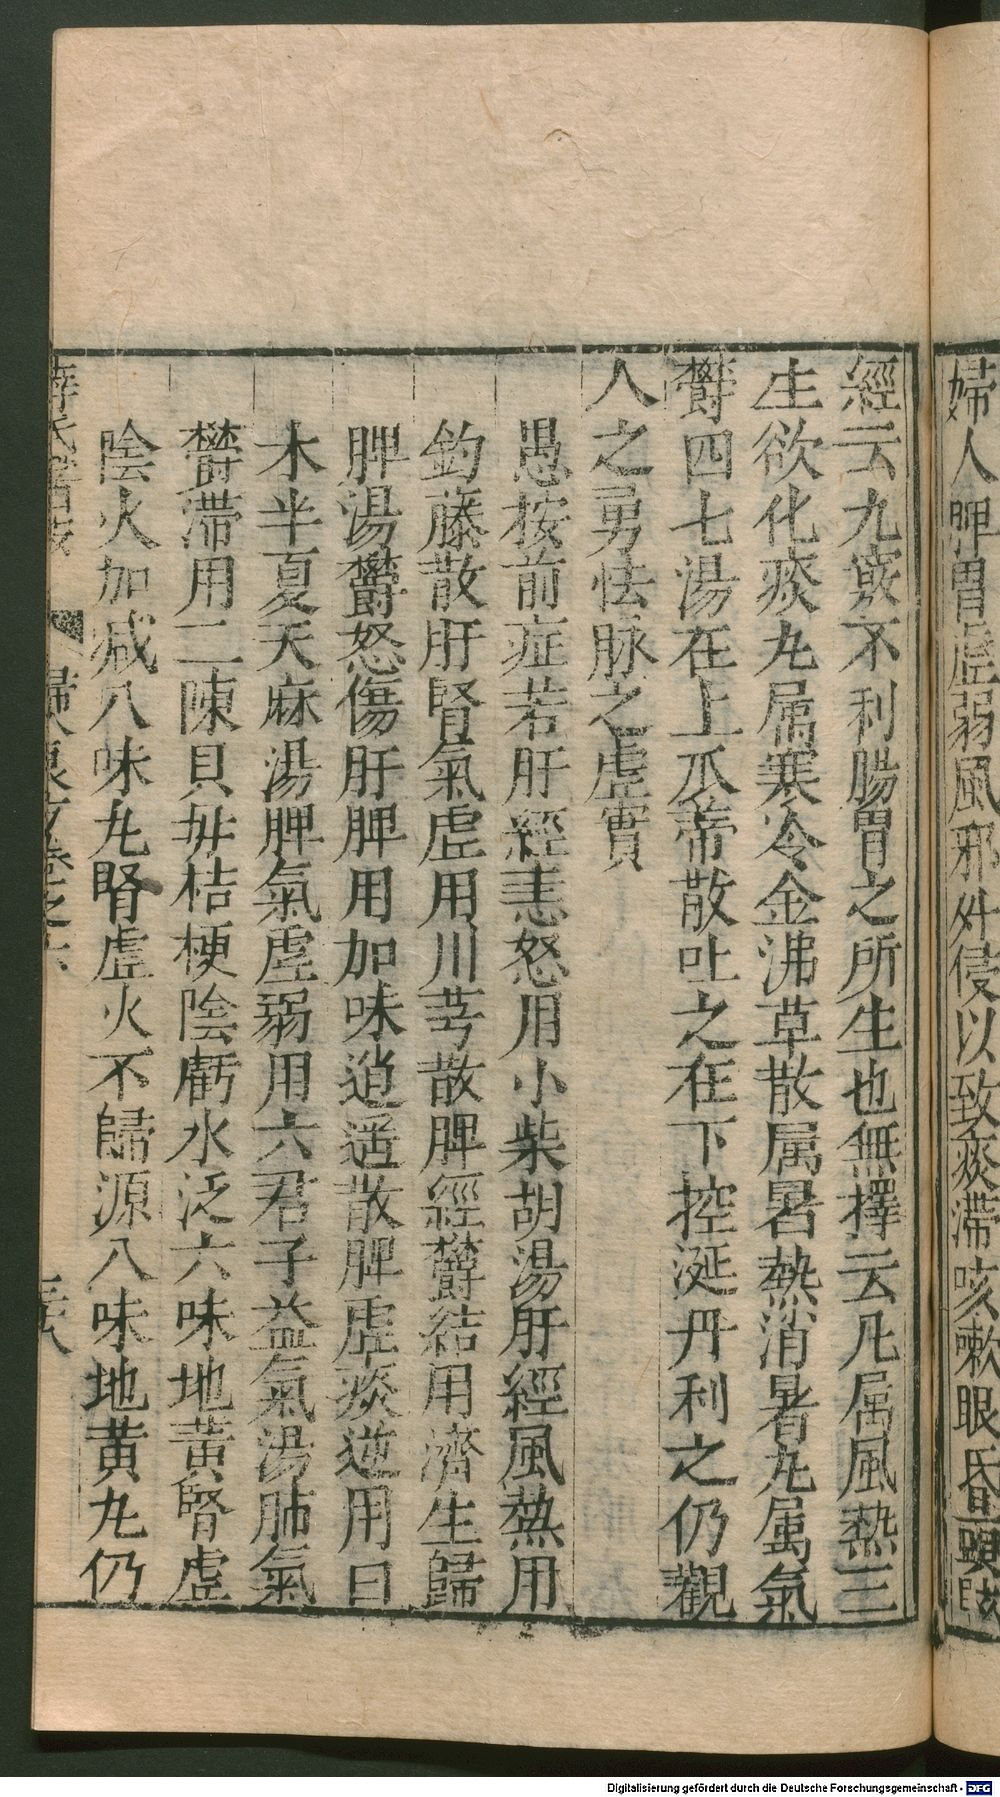 婦人脾胃虛弱風邪外侵以致痰滯咳嗽眼昏頭
經云九竅不利腸胃之所生也無擇云凡属風熱三
生欲化痰丸属寒冷金沸草散属暑熱消暑丸属氣
欝四七湯在上瓜蒂散吐之在下控涎丹利之仍觀
人之勇怯脉之虛實
愚按前症若肝經恚怒用小柴胡湯肝經風熱用
鈞藤散肝腎氣虛用川芎散脾經欝結用濟生歸
脾湯欝怒傷肝脾用加味逍遥散脾虛痰逆用曰
木半夏天麻湯脾氣虛弱用六君子益氣湯肺氣
欝滯用二陳貝毋桔梗陰虧水泛六味地黃腎虛
陰火加减八味丸腎虛火不歸源八味地黄丸仍
Digitalisierung gefördert durch die Deutsche Forschungsgemeinschaft - DFG